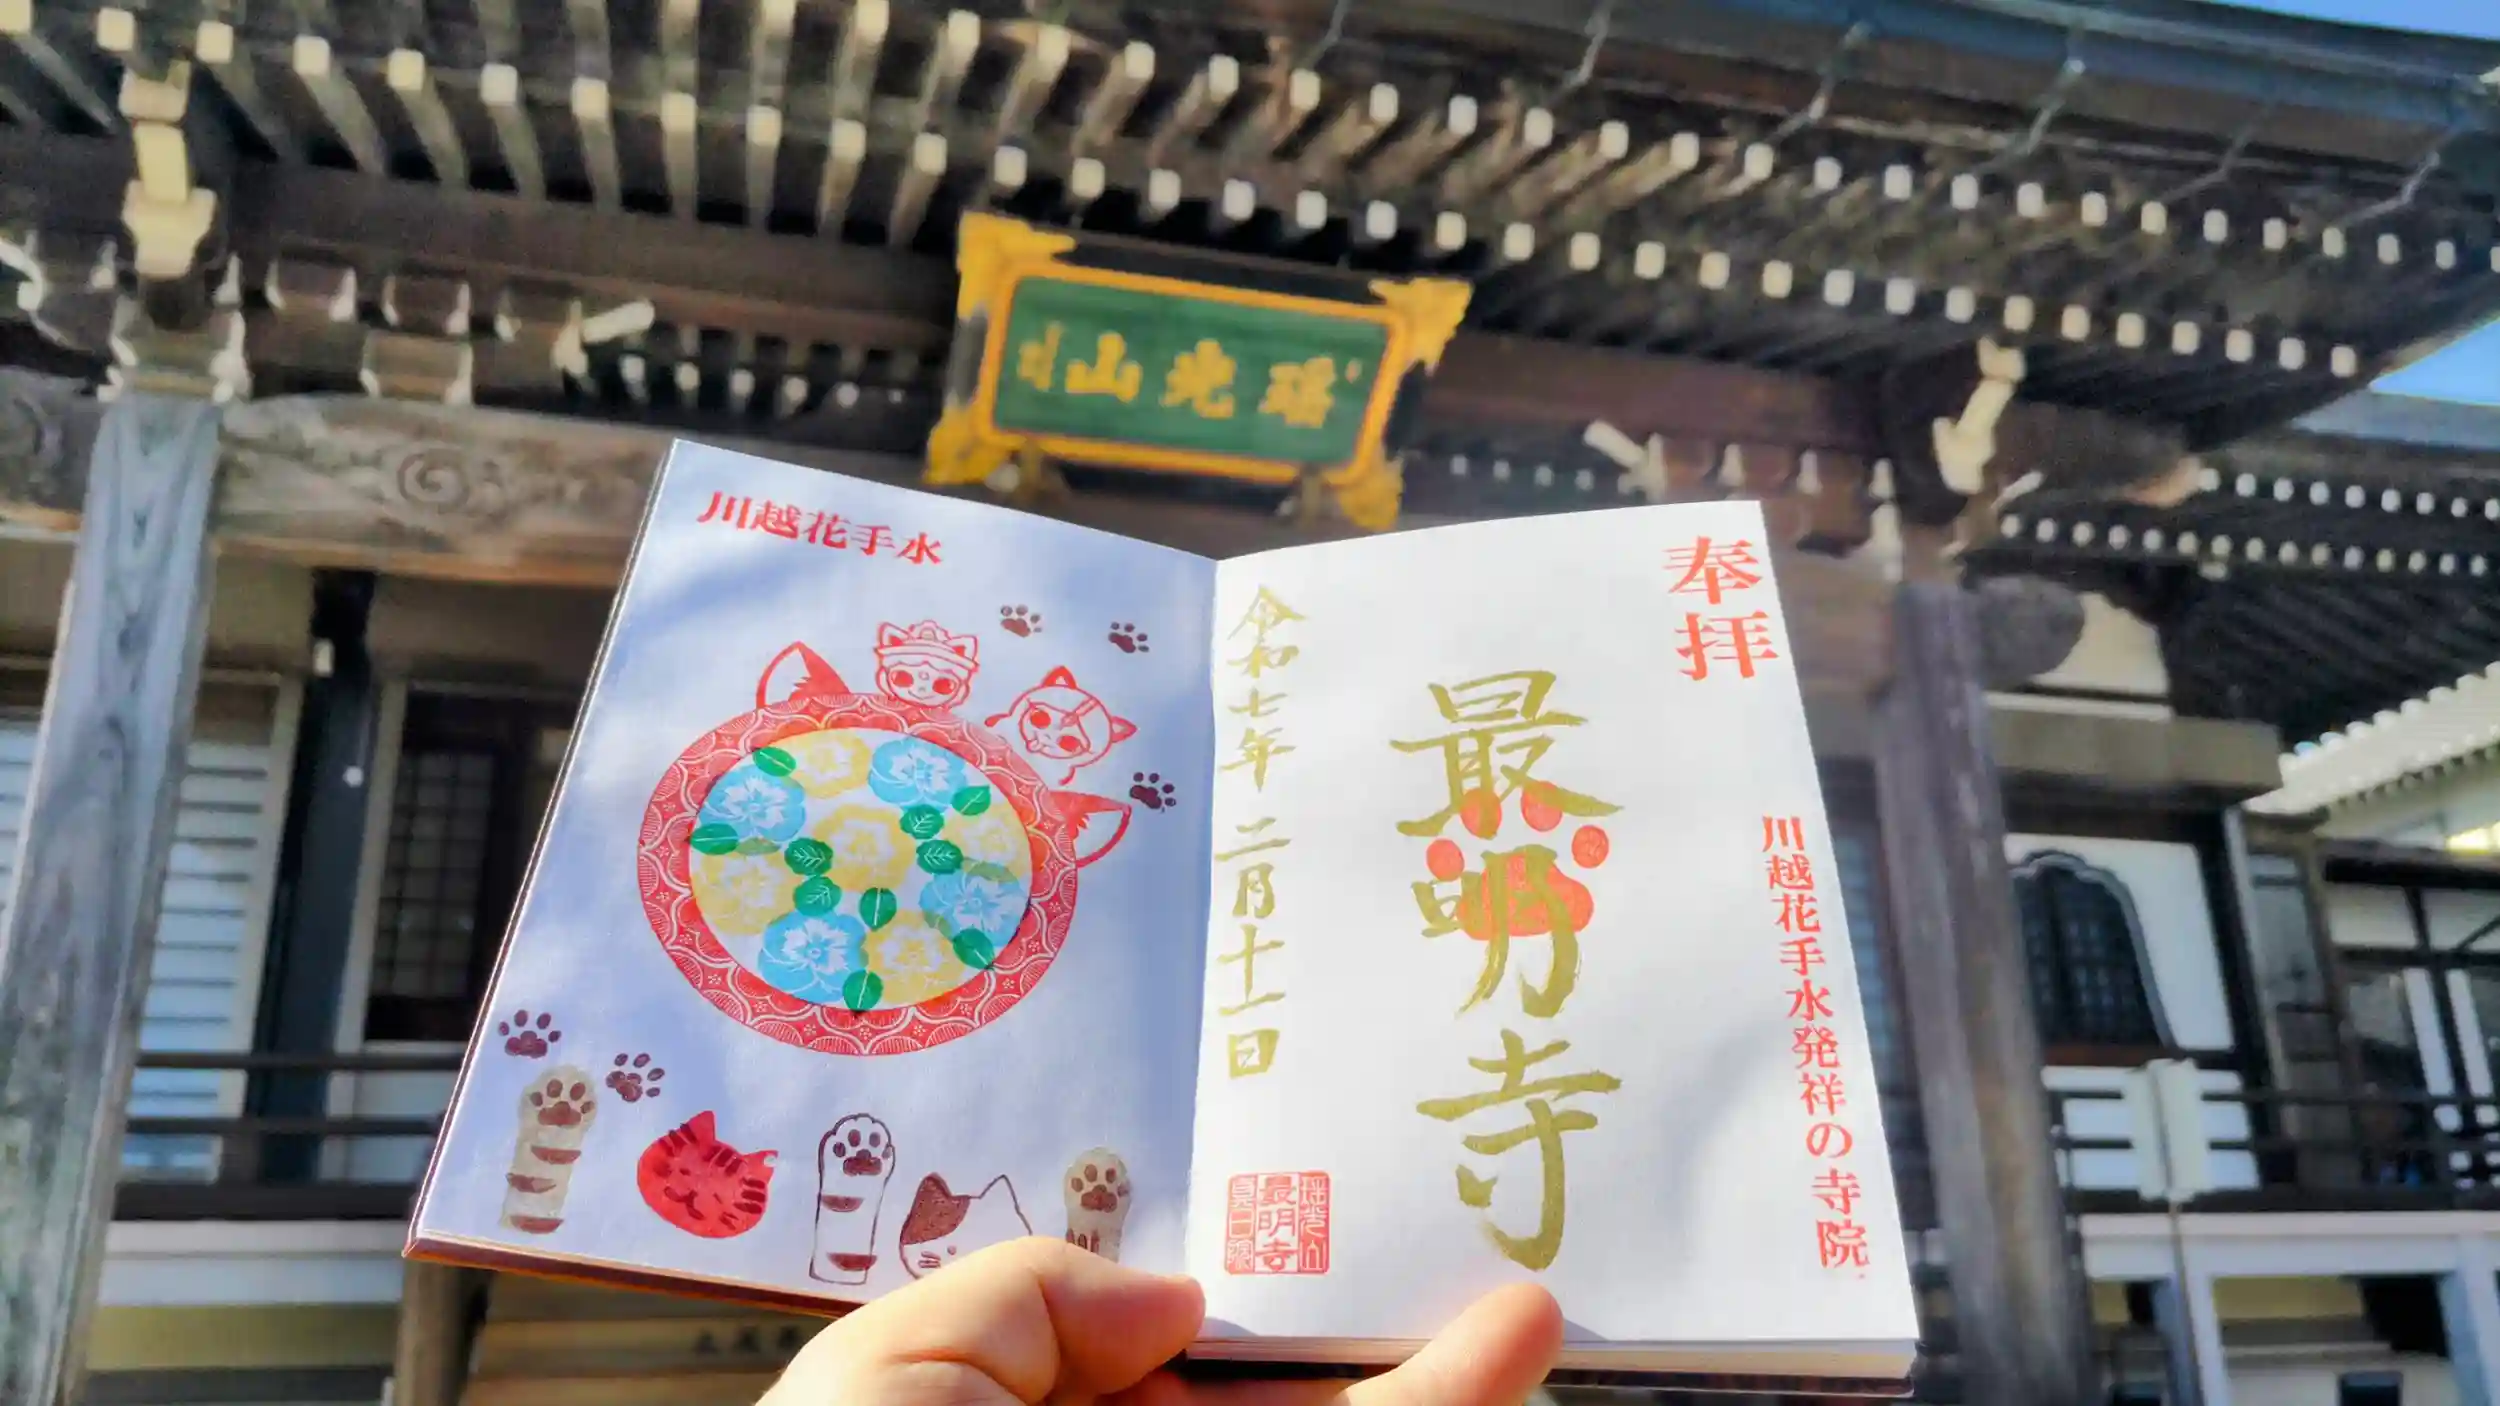 瑶光山
川越花手水
奉拝
川越花手水発祥の寺院
最明寺
令和七年二月十一日
瑶光山
最明寺